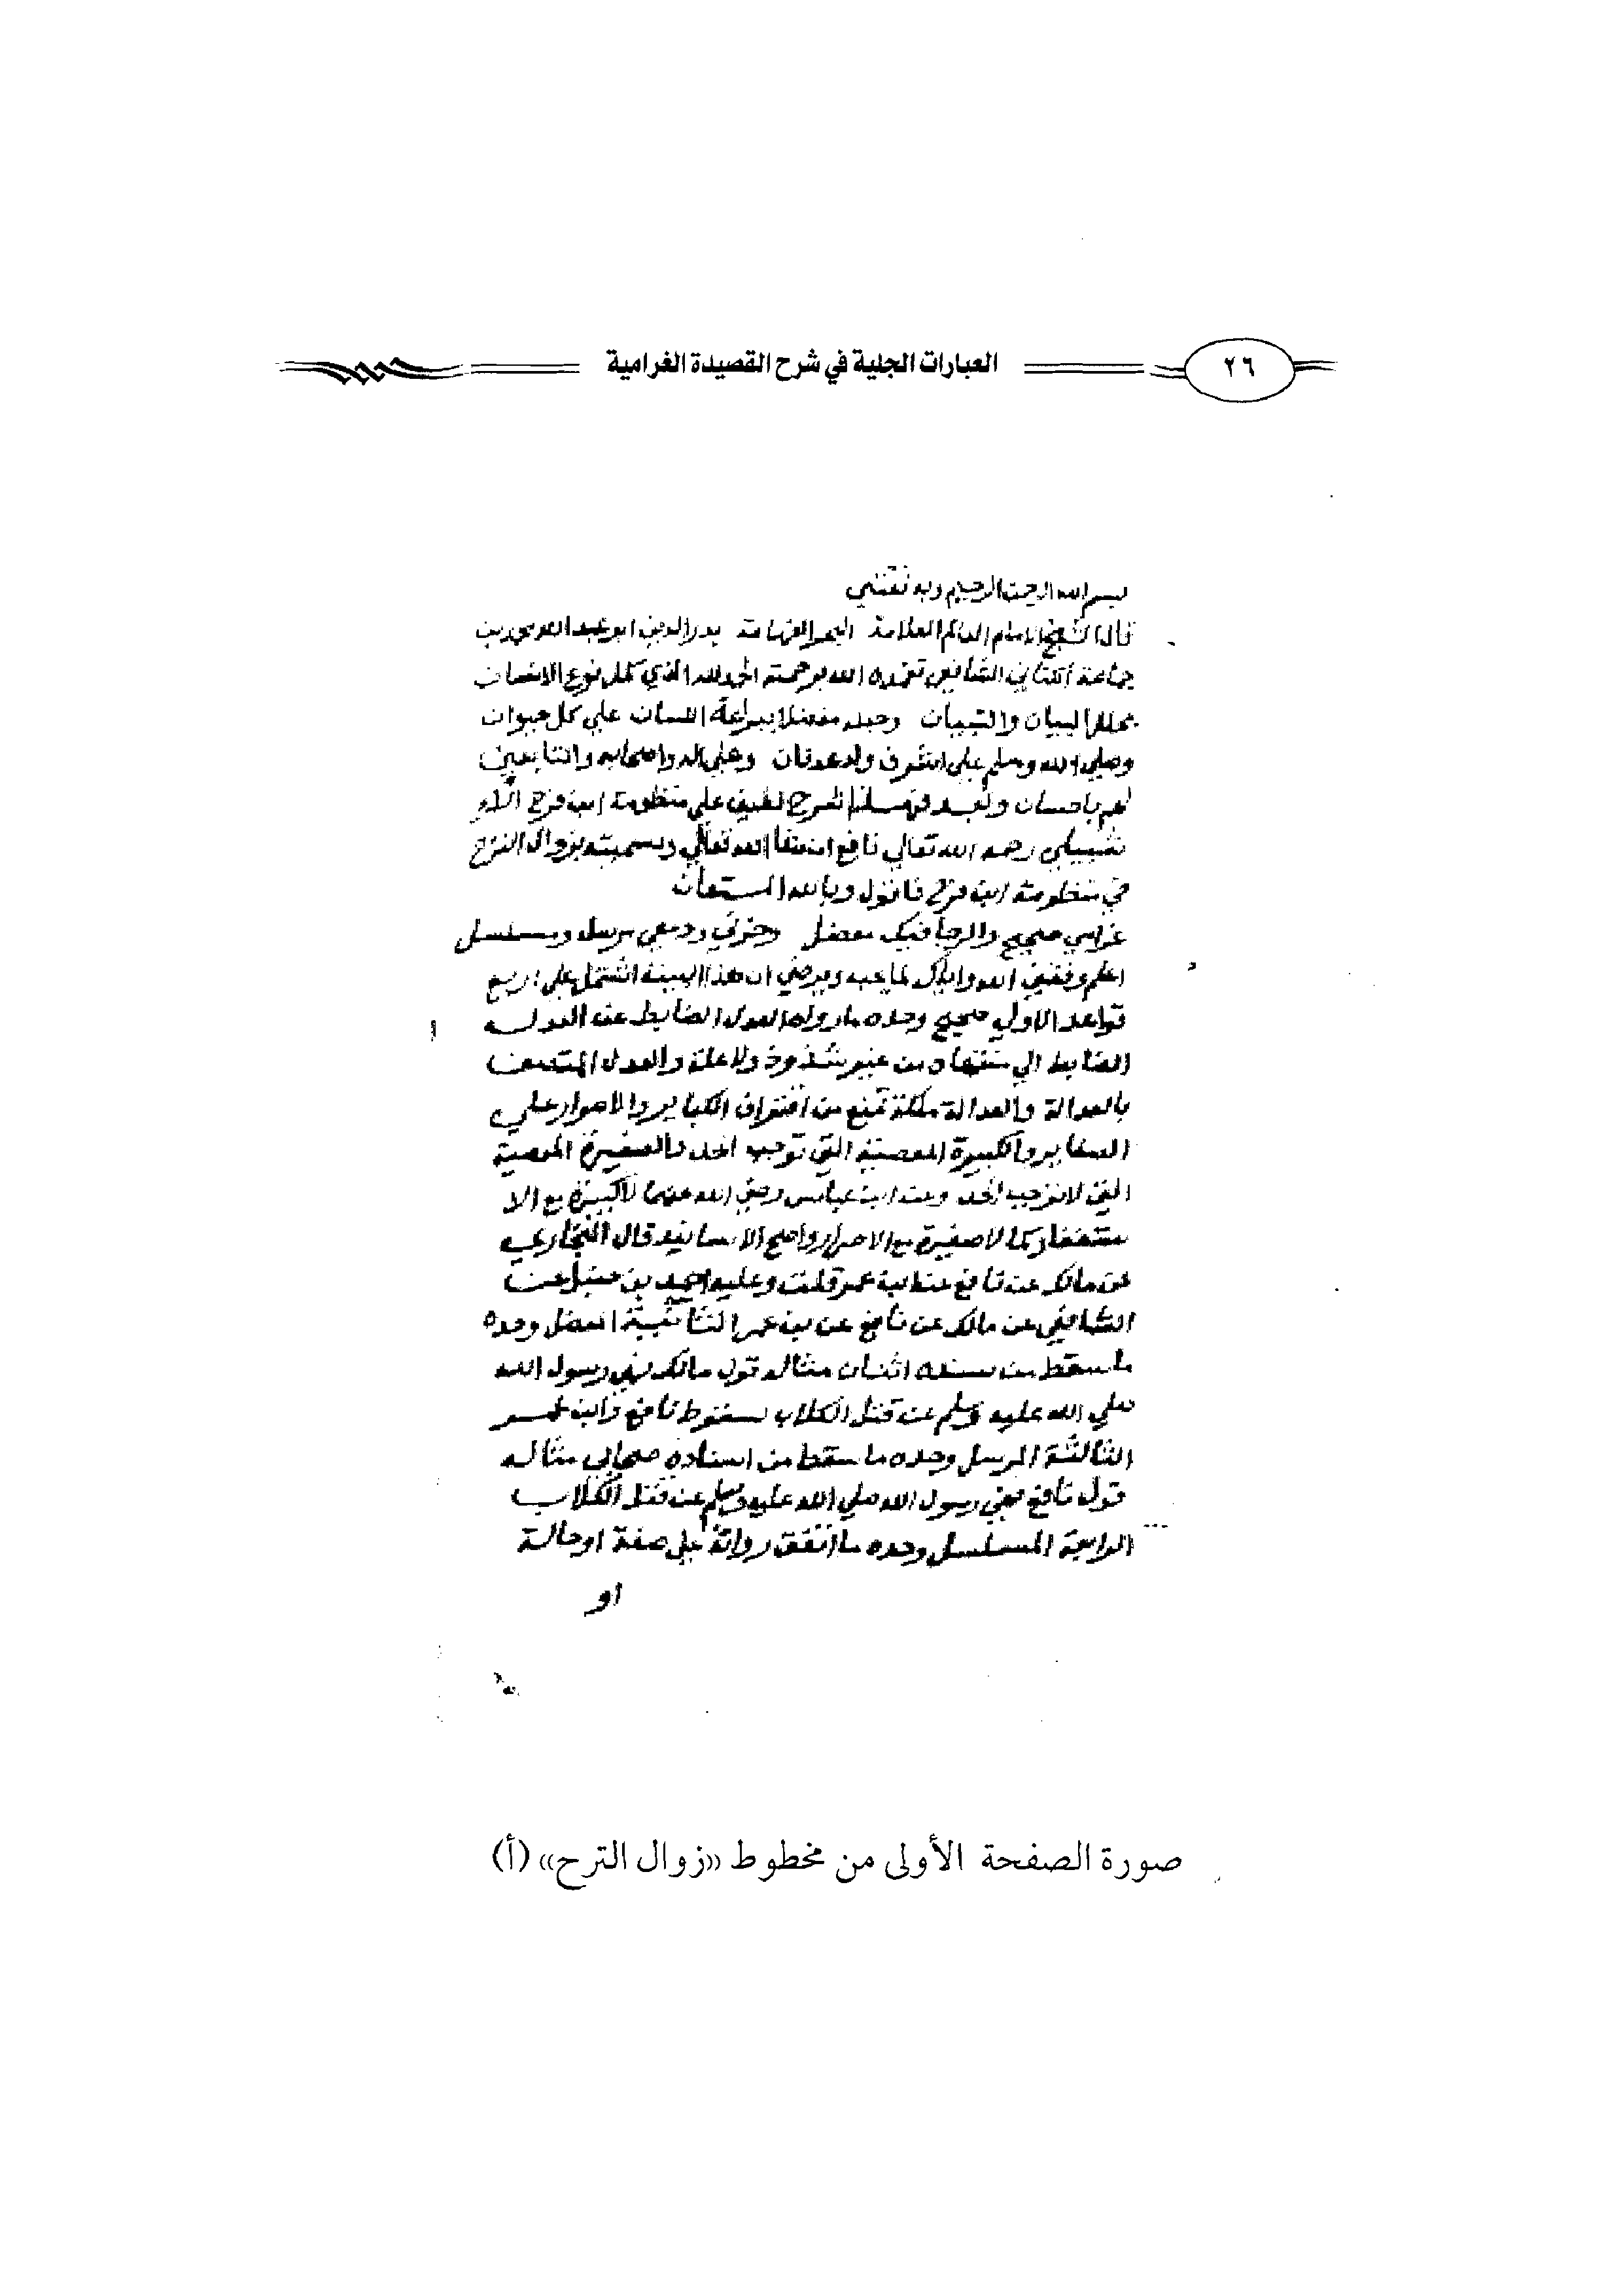 ٢٦
العبارات الجلية في شرح القصيدة الغرامية
بسم الله الرحمن الرحيم وبه ثقتي
قال الشيخ الامام العالم العلامة البحر الفهامة بدر الدين ابو عبد الله محمد بن
جماعة الكناني الشافعي تغمده الله برحمته الحمد لله الذي كمل نوع الانسان
بحلل البيان والتبيان وجعله مفضلا ببراعة اللسان علي كل حيوان
وصلي الله وسلم علي اشرف ولد عدنان وعلي اله واصحابه والتابعين
لهم باحسان وبعد فهـذا شرح لطيف علي منظومة ابن فرح الا
شبيلي رحمه الله تعالي نافع ان شا الله تعالي وسميته بزوال الترح
في منظومة ابن فرح فاقول وبالله المستعان
غرامي صحيح والرجا فيك معضل وحزني ودمعي مرسل ومسلسل
اعلم وفقني الله واياك لما يحبه ويرضي ان هذا البيت اشتمل علي اربع
قواعد الاولي صحيح وحده ما رواه العدل الضابط عن العدل
الضابط الي منتهاه من غير شذوذ ولا علة والعدل المتصف
بالعدالة والعدالة ملكة تمنع من اقتراف الكباير والاصرار علي
الصغاير والكبيرة المعصية التي توجب الحد والصغيرة المعصية
التي لا توجب الحد وعن ابن عباس رضي الله عنهما لا كبيرة مع الا
ستغفار كما لا صغيرة مع الاصرار واصح الاسانيد قال البخاري
عن مالك عن نافع عن ابن عمر قلت وعليه احمد بن حنبل عن
الشافعي عن مالك عن نافع عن بن عمر الثانية المعضل وحده
ما سقط من سنده اثنان مثاله قول مالك نهي رسول الله
صلي الله عليه وسلم عن قتل الكلاب لسقوط نافع وابن عمر
الثالثة المرسل وحده ما سقط من اسناده صحابي مثاله
قول نافع نهي رسول الله صلي الله عليه وسلم عن قتل الكلاب
الرابعة المسلسل وحده ما اتفق رواته علي صفة او حالة
او
صورة الصفحة الأولى من مخطوط «زوال الترح» (أ)